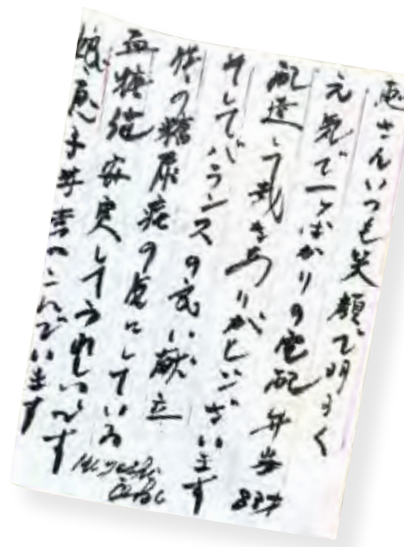 恵さんいつも笑顔で明るく
元気で一ヶばかりの宅配弁当
配達して戴きありがとうございます
そしてバランスの良い献立
僕の糖尿病の為にしている
血糖値安定してうれしいです
娘恵子共喜こんでいます
83才